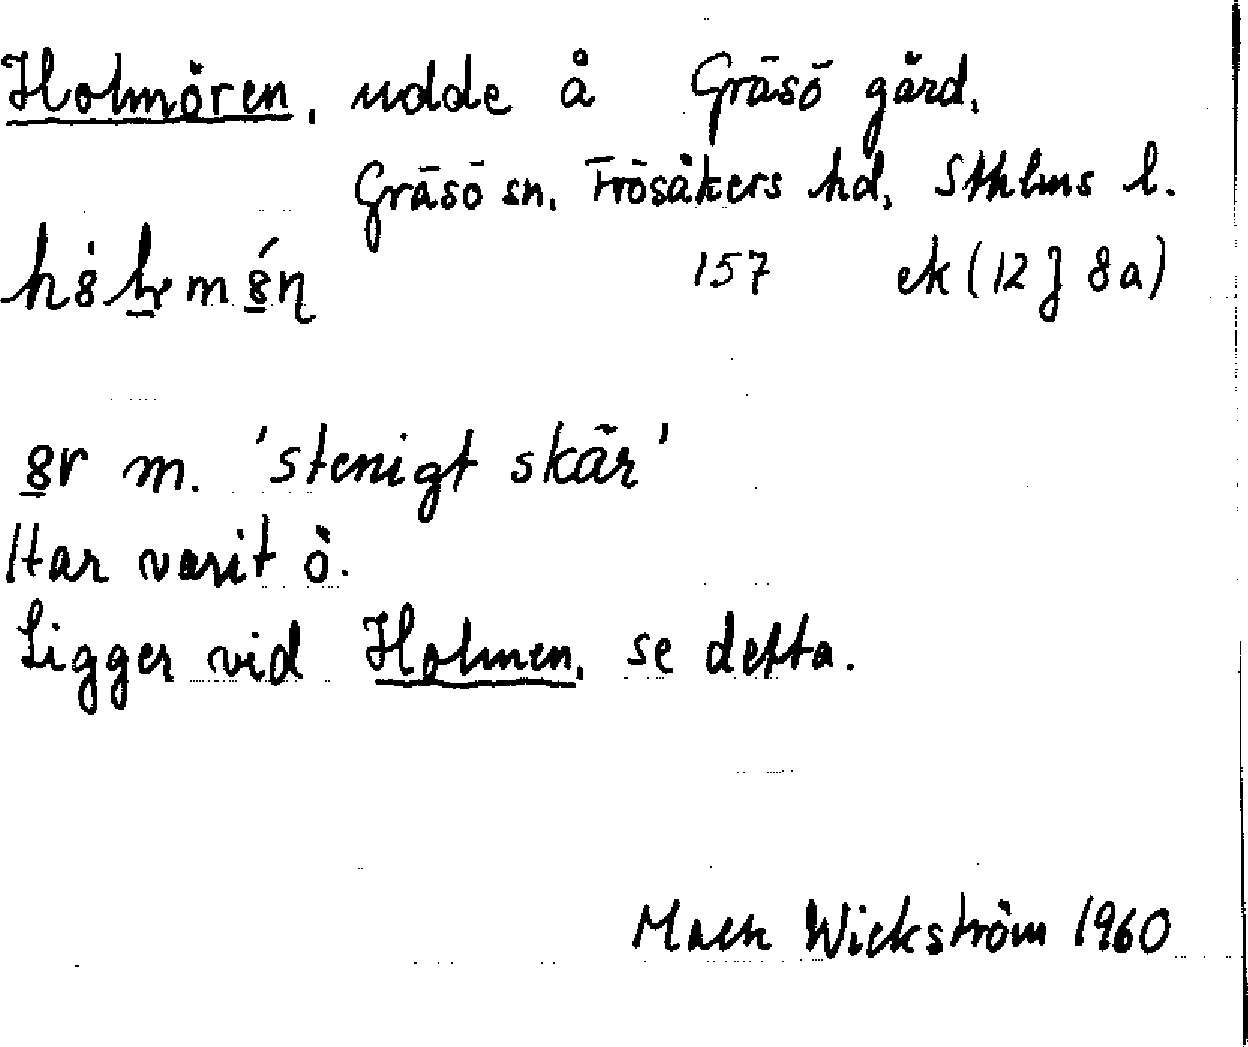 Holmören, udde å Gräsö gård,
Gräsö sn. Frösåkers hd, Sthlms l.
157 ek (12 J 8a)
m. 'stenigt skär'
Har varit ö.
Ligger vid Holmen, se detta.
Wickström 1960